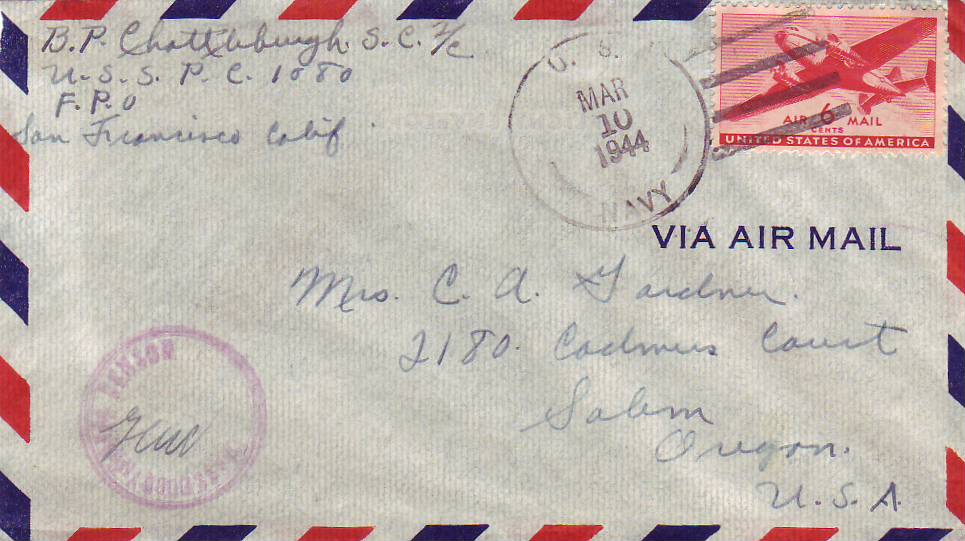 B. P. Chattleburgh S. C. 2/c
U. S. S. P. C. 1080
F. P. O
San Francisco Calif
U. S.
MAR
10
1944
NAVY
AIR 6 MAIL
CENTS
UNITED STATES OF AMERICA
VIA AIR MAIL
Mrs. C. A. Gardner.
2180. Cadmus Court
Salem
Oregon.
U. S. A.
CENSOR